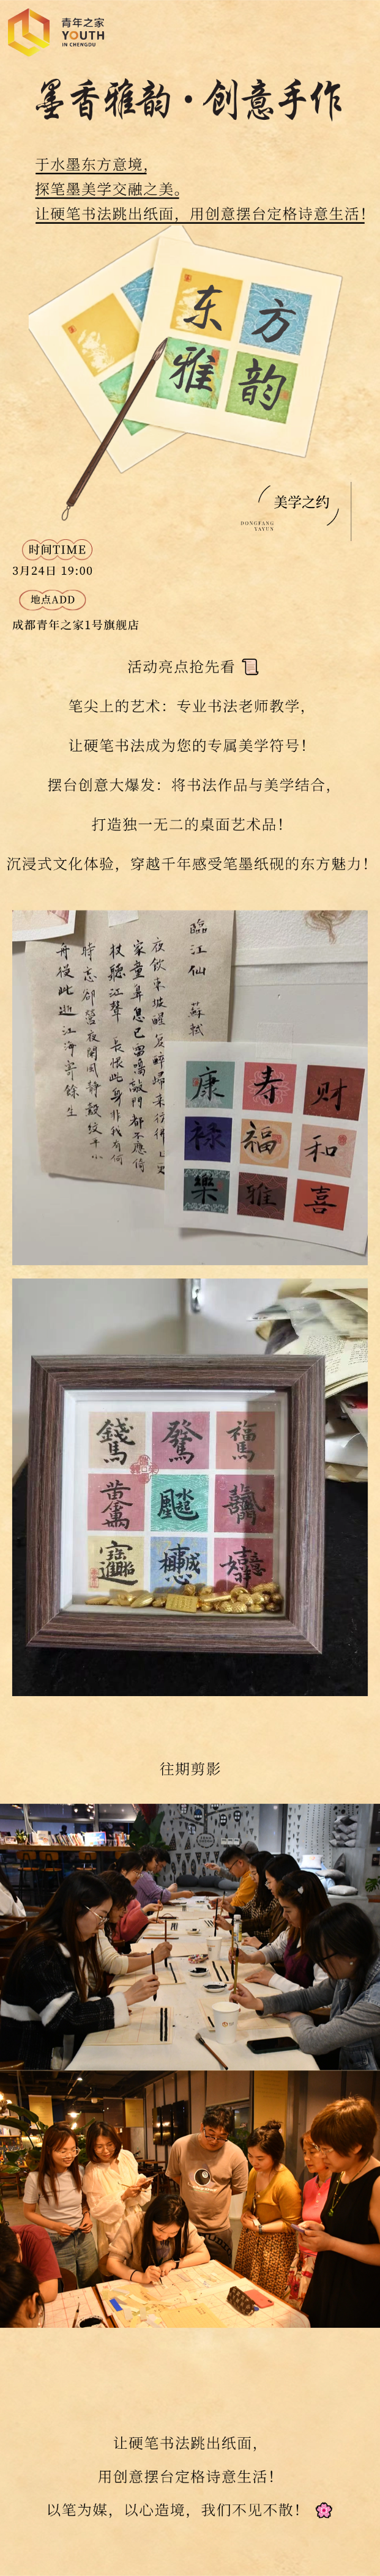 青年之家
YOUTH
IN CHENGDU
墨香雅韵·创意手作
于水墨东方意境,
探笔墨美学交融之美。
让硬笔书法跳出纸面，用创意摆台定格诗意生活！
东方
雅韵
美学之约
DONGFANG
YAYUN
时间TIME
3月24日 19:00
地点ADD
成都青年之家1号旗舰店
活动亮点抢先看
笔尖上的艺术：专业书法老师教学，
让硬笔书法成为您的专属美学符号！
摆台创意大爆发：将书法作品与美学结合，
打造独一无二的桌面艺术品！
沉浸式文化体验，穿越千年感受笔墨纸砚的东方魅力！
臨江仙 蘇軾
夜飲東坡醒復醉歸来彷彿三更
家童鼻息已雷鳴敲門都不應倚
杖聽江聲 長恨此身非我有何
時忘卻營營夜闌風靜縠紋平小
舟從此逝江海寄餘生
康 寿 财
禄 福 和
樂 雅 喜
往期剪影
让硬笔书法跳出纸面，
用创意摆台定格诗意生活！
以笔为媒，以心造境，我们不见不散！